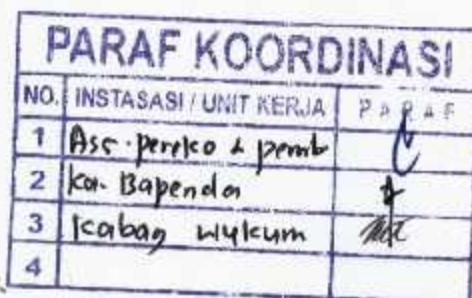 PARAF KOORDINASI
NO. INSTASASI / UNIT KERJA PARAF
1 Ass. pereko & pemb
2 ka. Bapenda
3 kabag
4